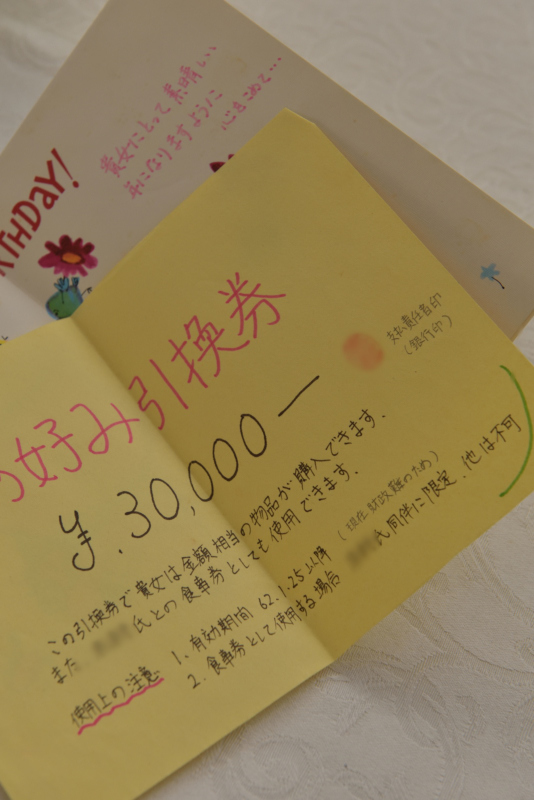 RTHDAY!
貴女にとって素晴しい
年になりますように
心をこめて…
お好み引換券
¥.30,000ー
支払責任者印
(銀行印)
この引換券で貴女は金額相当の物品が購入できます.
また 氏との食事券としても使用できます.
使用上の注意
1. 有効期間 62.1.25以降 (現在財政難のため)
2. 食事券として使用する場合 氏同伴に限定. 他は不可